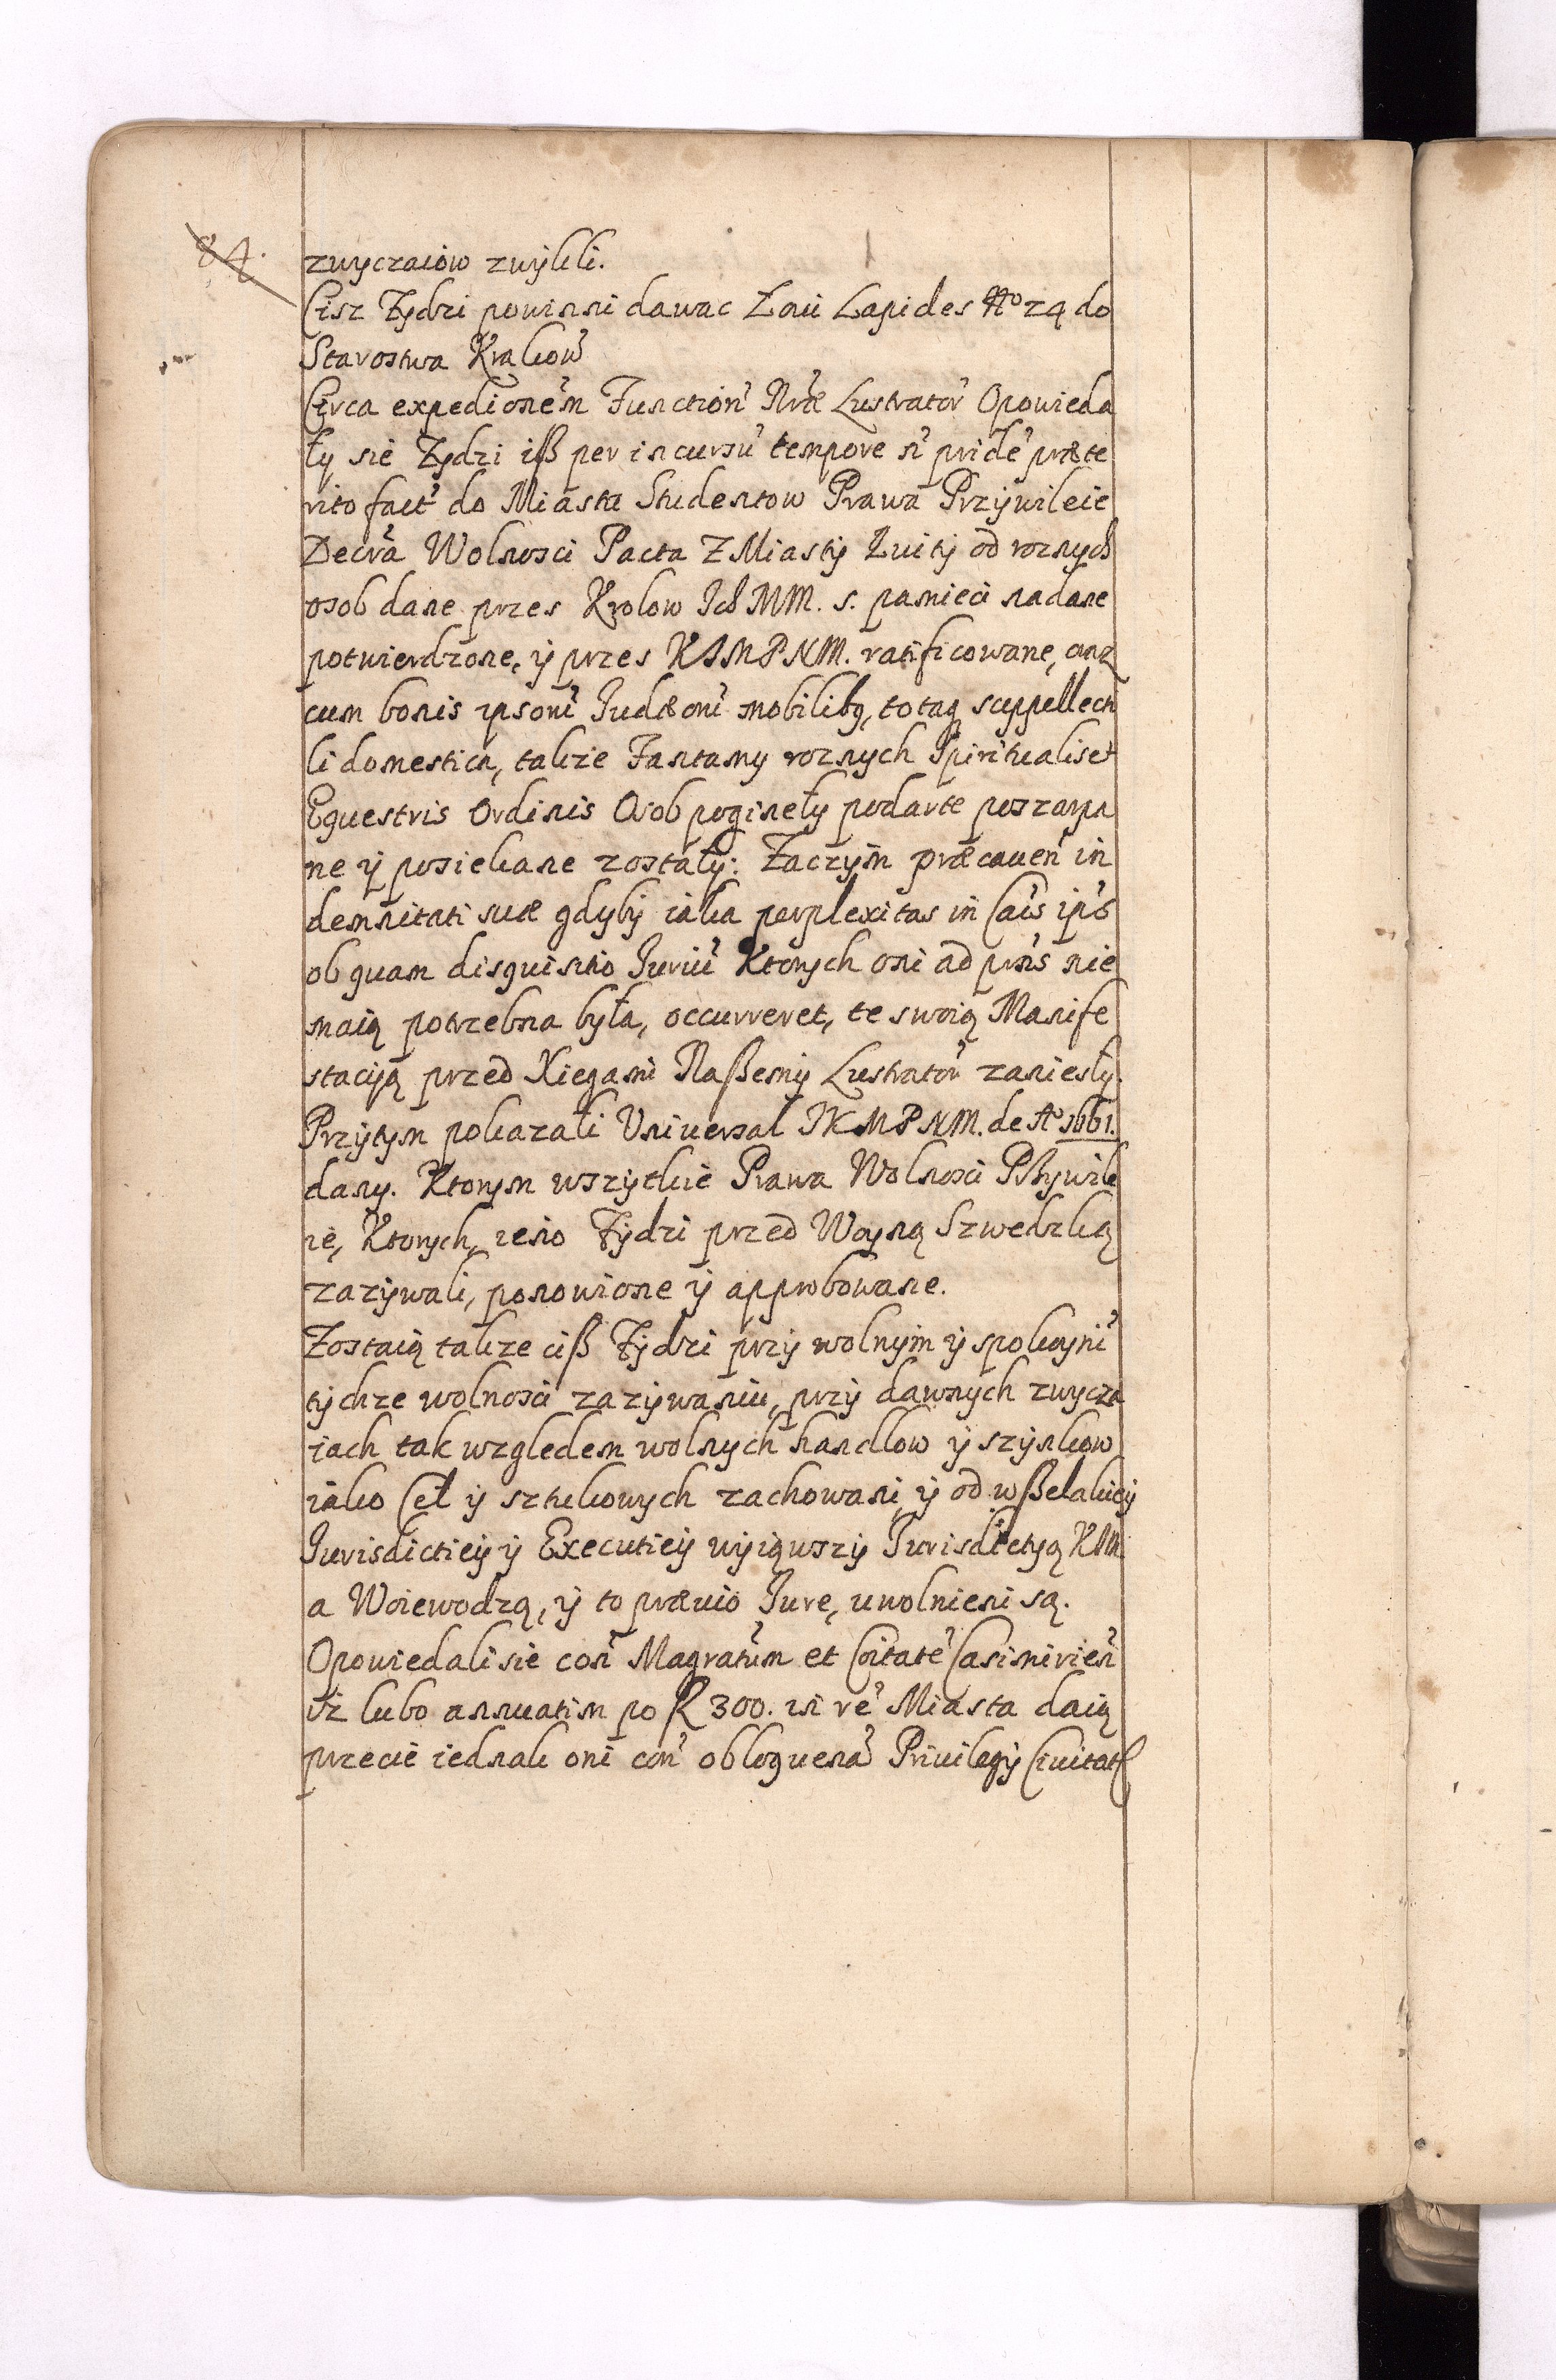 84.
zwyczaiow zwykli.
Cisz Zydzi powinni dawac Łoiu Lapides No 24 do
Starostwa Krakow̃
Circa expedionem̃ Function̓ Nr̃æ Lustrator̓ Opowieda
ły sie Zydzi iß per incursũ tempore ñ pridẽ præte
rito fact̓ do Miasta Studentow Prawa Przywileie
Decr̃a Wolnosci Pacta z Miasty Kwity od roznych
osob dane przes Krolow Ich MM. s. pamieci nadane
potwierdzone, ÿ przes KIMPNM. ratificowane, oraz
cum bonis ipsorũ Judæorũ mobilibq, totaq suppellecti
li domestica, takze Fantamy roznych Spiritualis et
Equestris Ordinis Osob poginęły podarte poszarpa
ne ÿ posiekane zostały: Zaczym̃ præcaueñ in
demnitati suæ gdyby iaka perplexitas in Cãis ip̃s
ob quam disquisitio Juriũ Ktorych oni ad pn̄s nie
maią potrzebna była, occurreret, te swoią Manife
stacyą przed Xiegami Naßemÿ Lustrator̓ zaniesłÿ.
Przytym pokazali Uniuersal JKMPNM. de Ao 1661.
dany. Ktorym wszytkie Prawa Wolnosci PRzywile
ie, Ktorych, ieno Zÿdzi przed Woyną Szwedzką
zazÿwali, ponowione ÿ approbowane.
Zostaią takze ciß Zÿdzi przÿ wolnym ÿ spokoynÿ̃
tychze wolnosci zazÿwaniu, przÿ dawnych zwycza
iach tak wzgledem wolnych handlow ÿ szynkow
iako Cel ÿ sztukowych zachowani ÿ od wßelakieÿ
Jurisdictieÿ ÿ Executieÿ wyiąwszÿ Jurisdictyą KIM
a Woiewodzą, ÿ to præuio Jure, uwolnieni są.
Opowiedali sie coñ Magratum̃ et Cõitatẽ Casimirieñ
iz lubo annuatim po fl 300. in rẽ Miasta daią
przecie iednak oni coñ obloquenã Priuilegÿ Ciuitatis